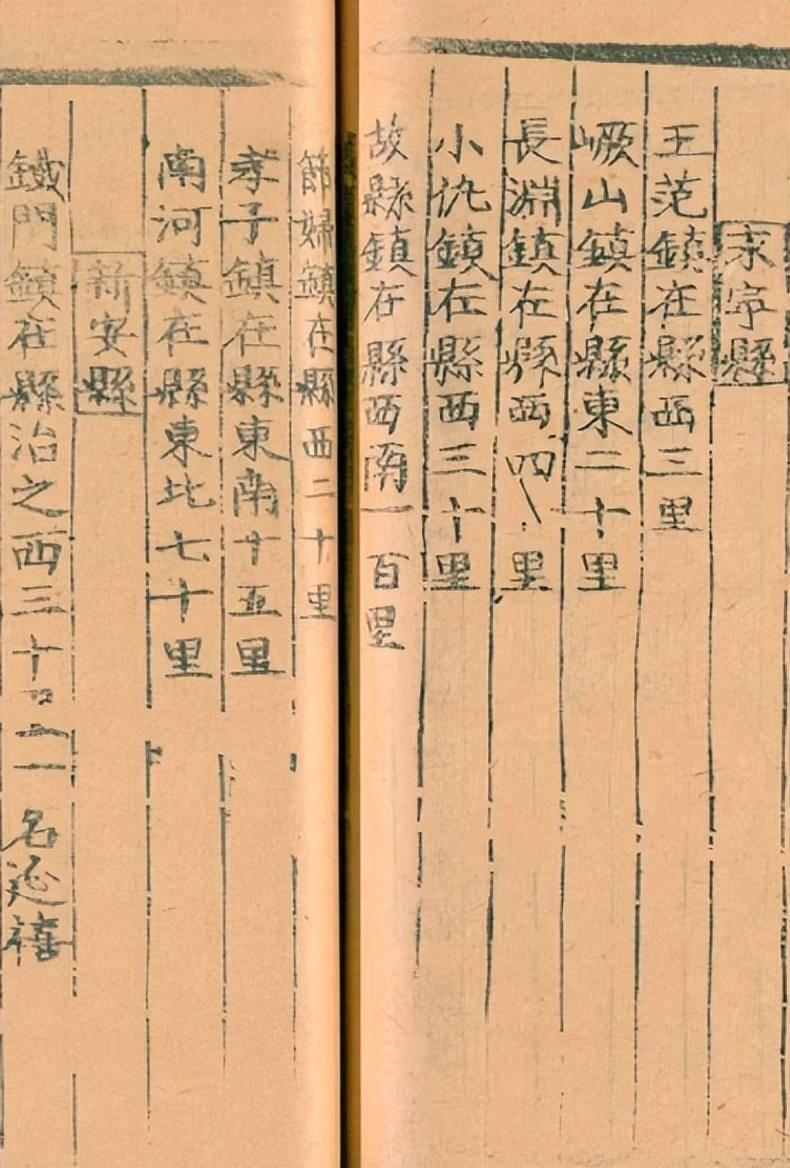 永寧縣
王范鎮在縣西三里
嶥山鎮在縣東二十里
長淵鎮在縣西四里
小仇鎮在縣西三十里
故縣鎮在縣西南一百里
節婦鎮在縣西二十里
孝子鎮在縣東南十五里
南河鎮在縣東北七十里
新安縣
鐵門鎮在縣治之西三十 名延禧